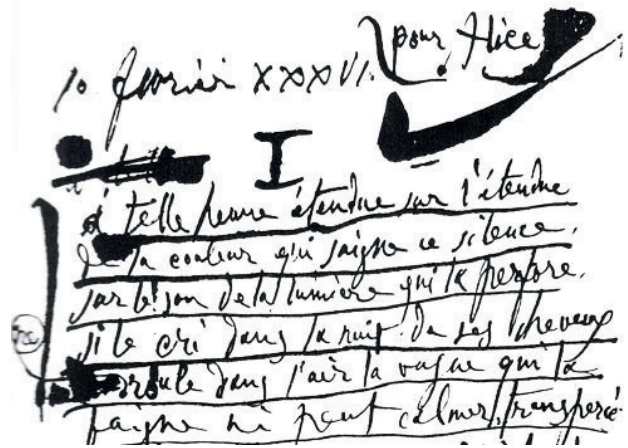 pour Alice
10 février XXXVI.
I
telle heure étendue sur l'étendue
de la couleur qui saigne ce silence.
sur le son de la lumière qui la perfore.
si le cri dans la nuit de ses cheveux
dans l'air la vague qui la
ni peut calmer, transpercé